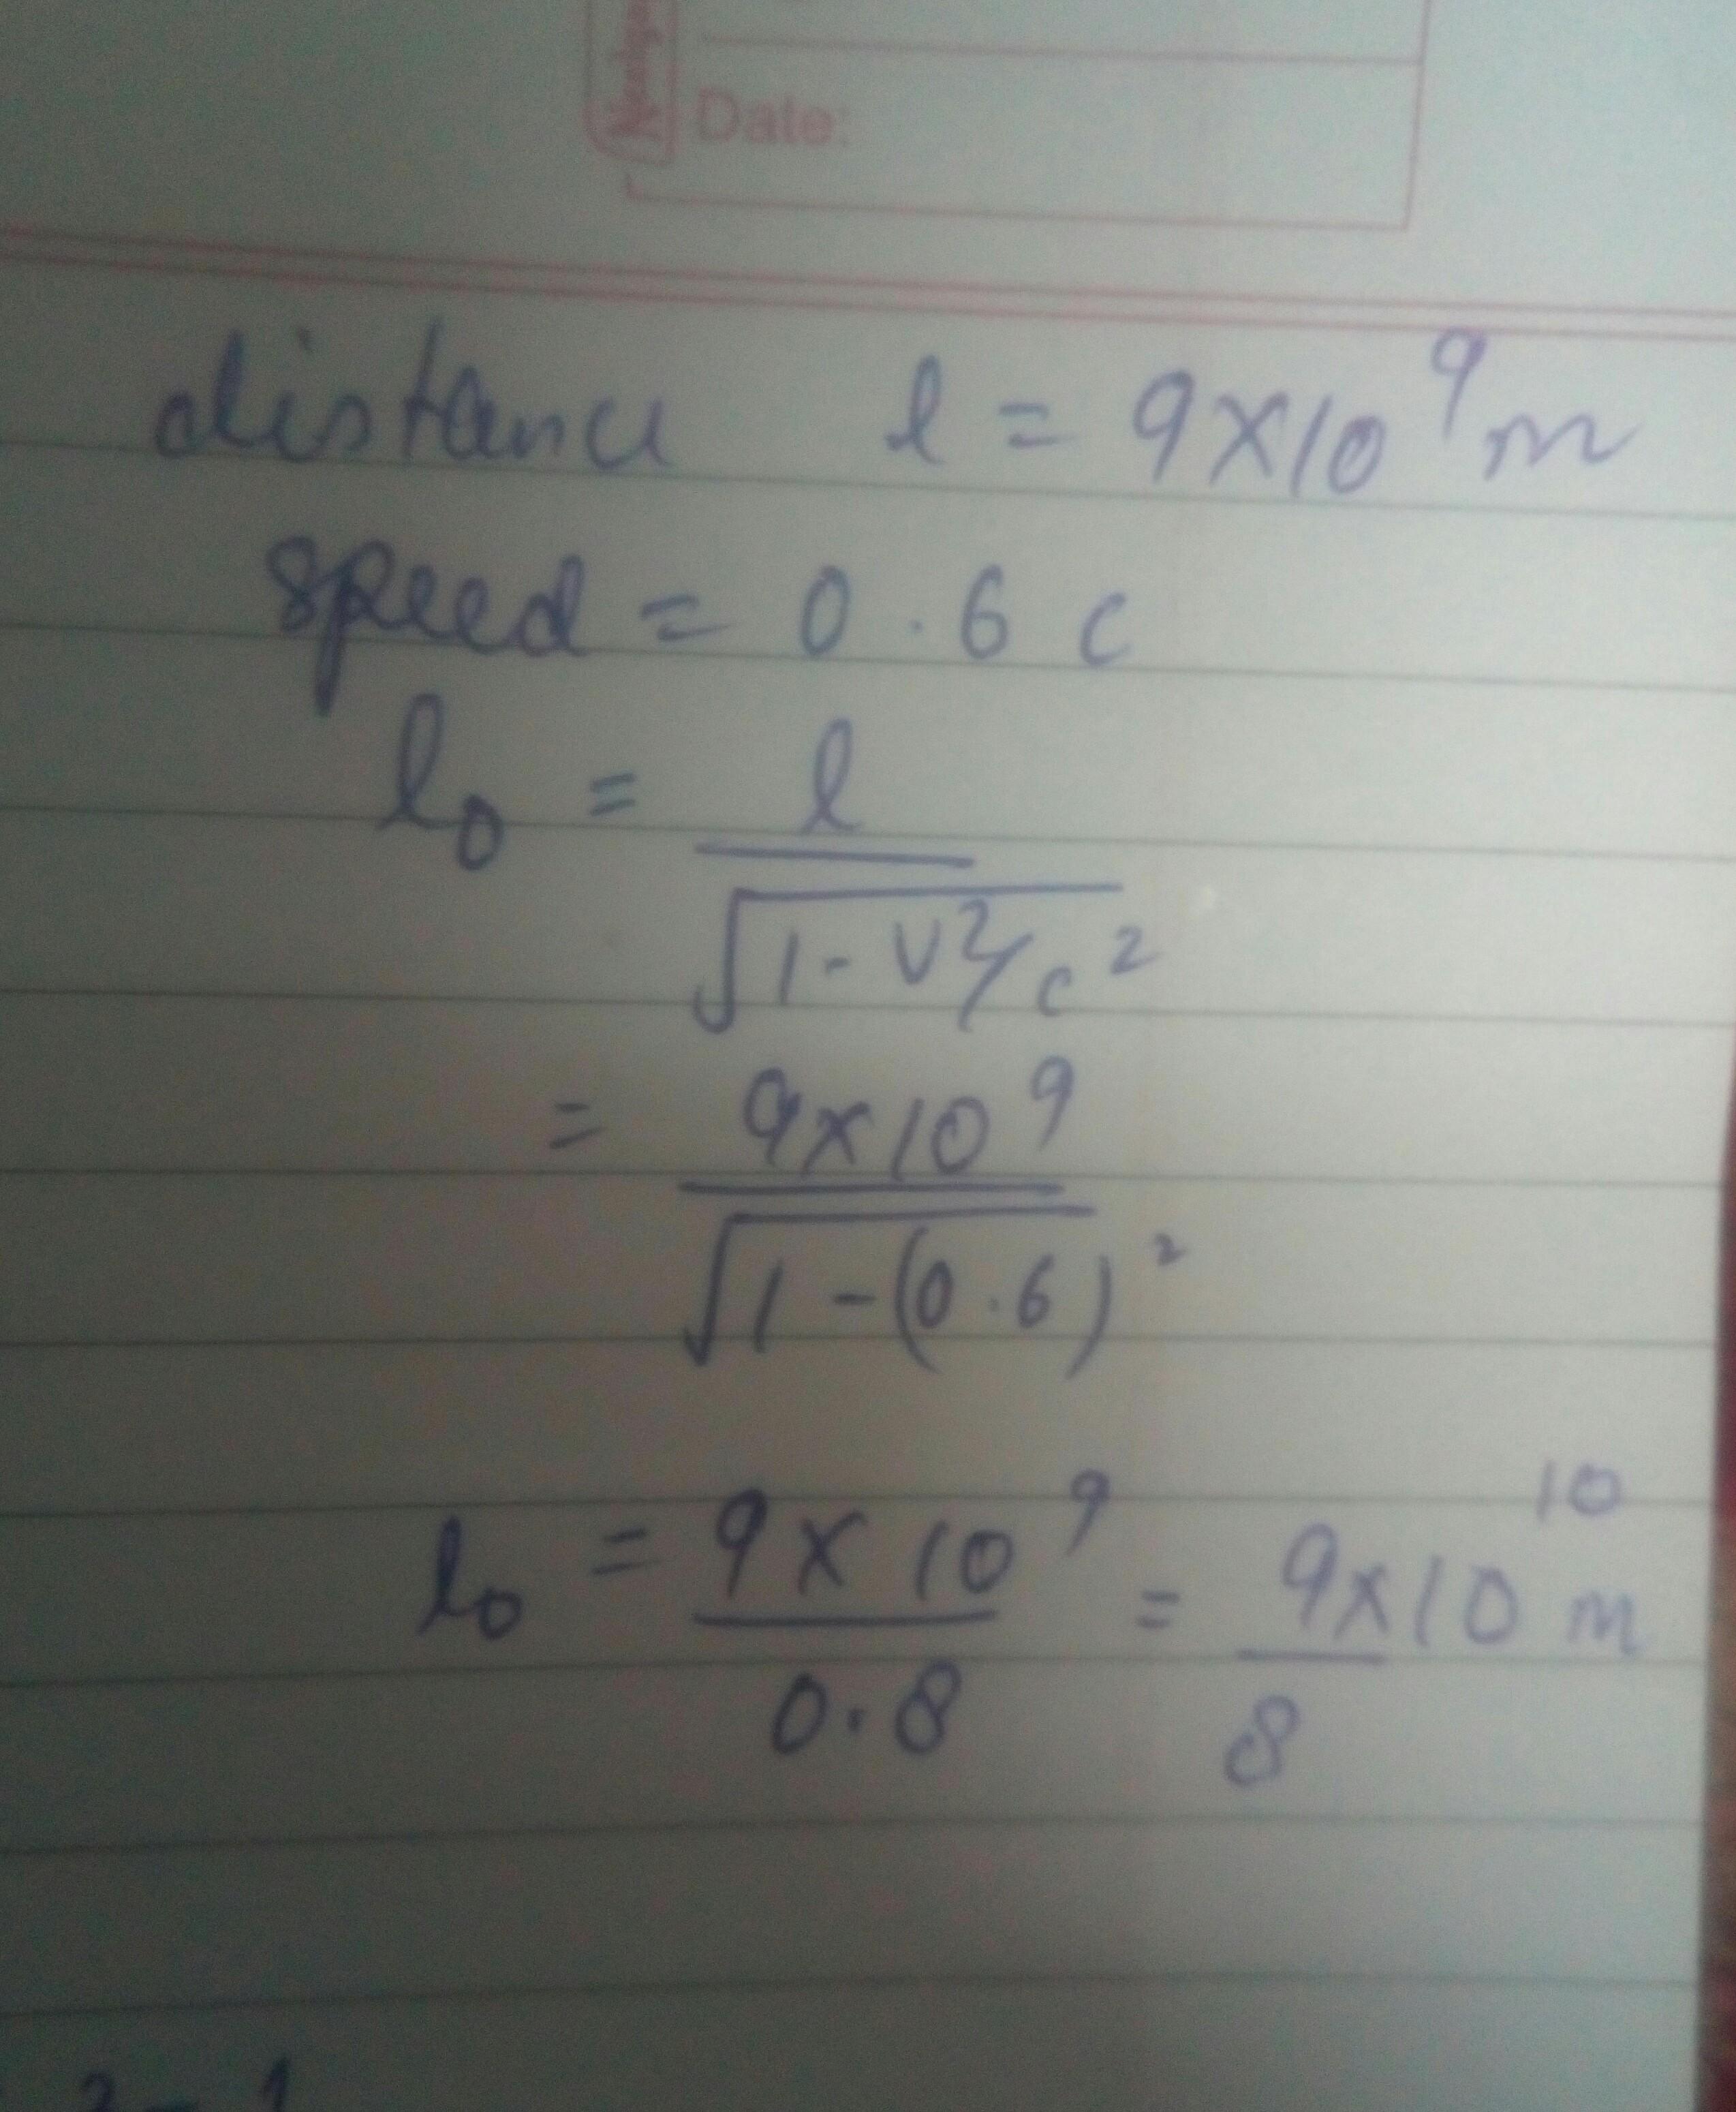 Date:
distance l = 9×10⁹ m
speed = 0.6 c
l₀ = l / √1-v²/c²
= 9×10⁹ / √1-(0.6)²
l₀ = 9×10⁹ / 0.8 = 9/8 ×10¹⁰ m